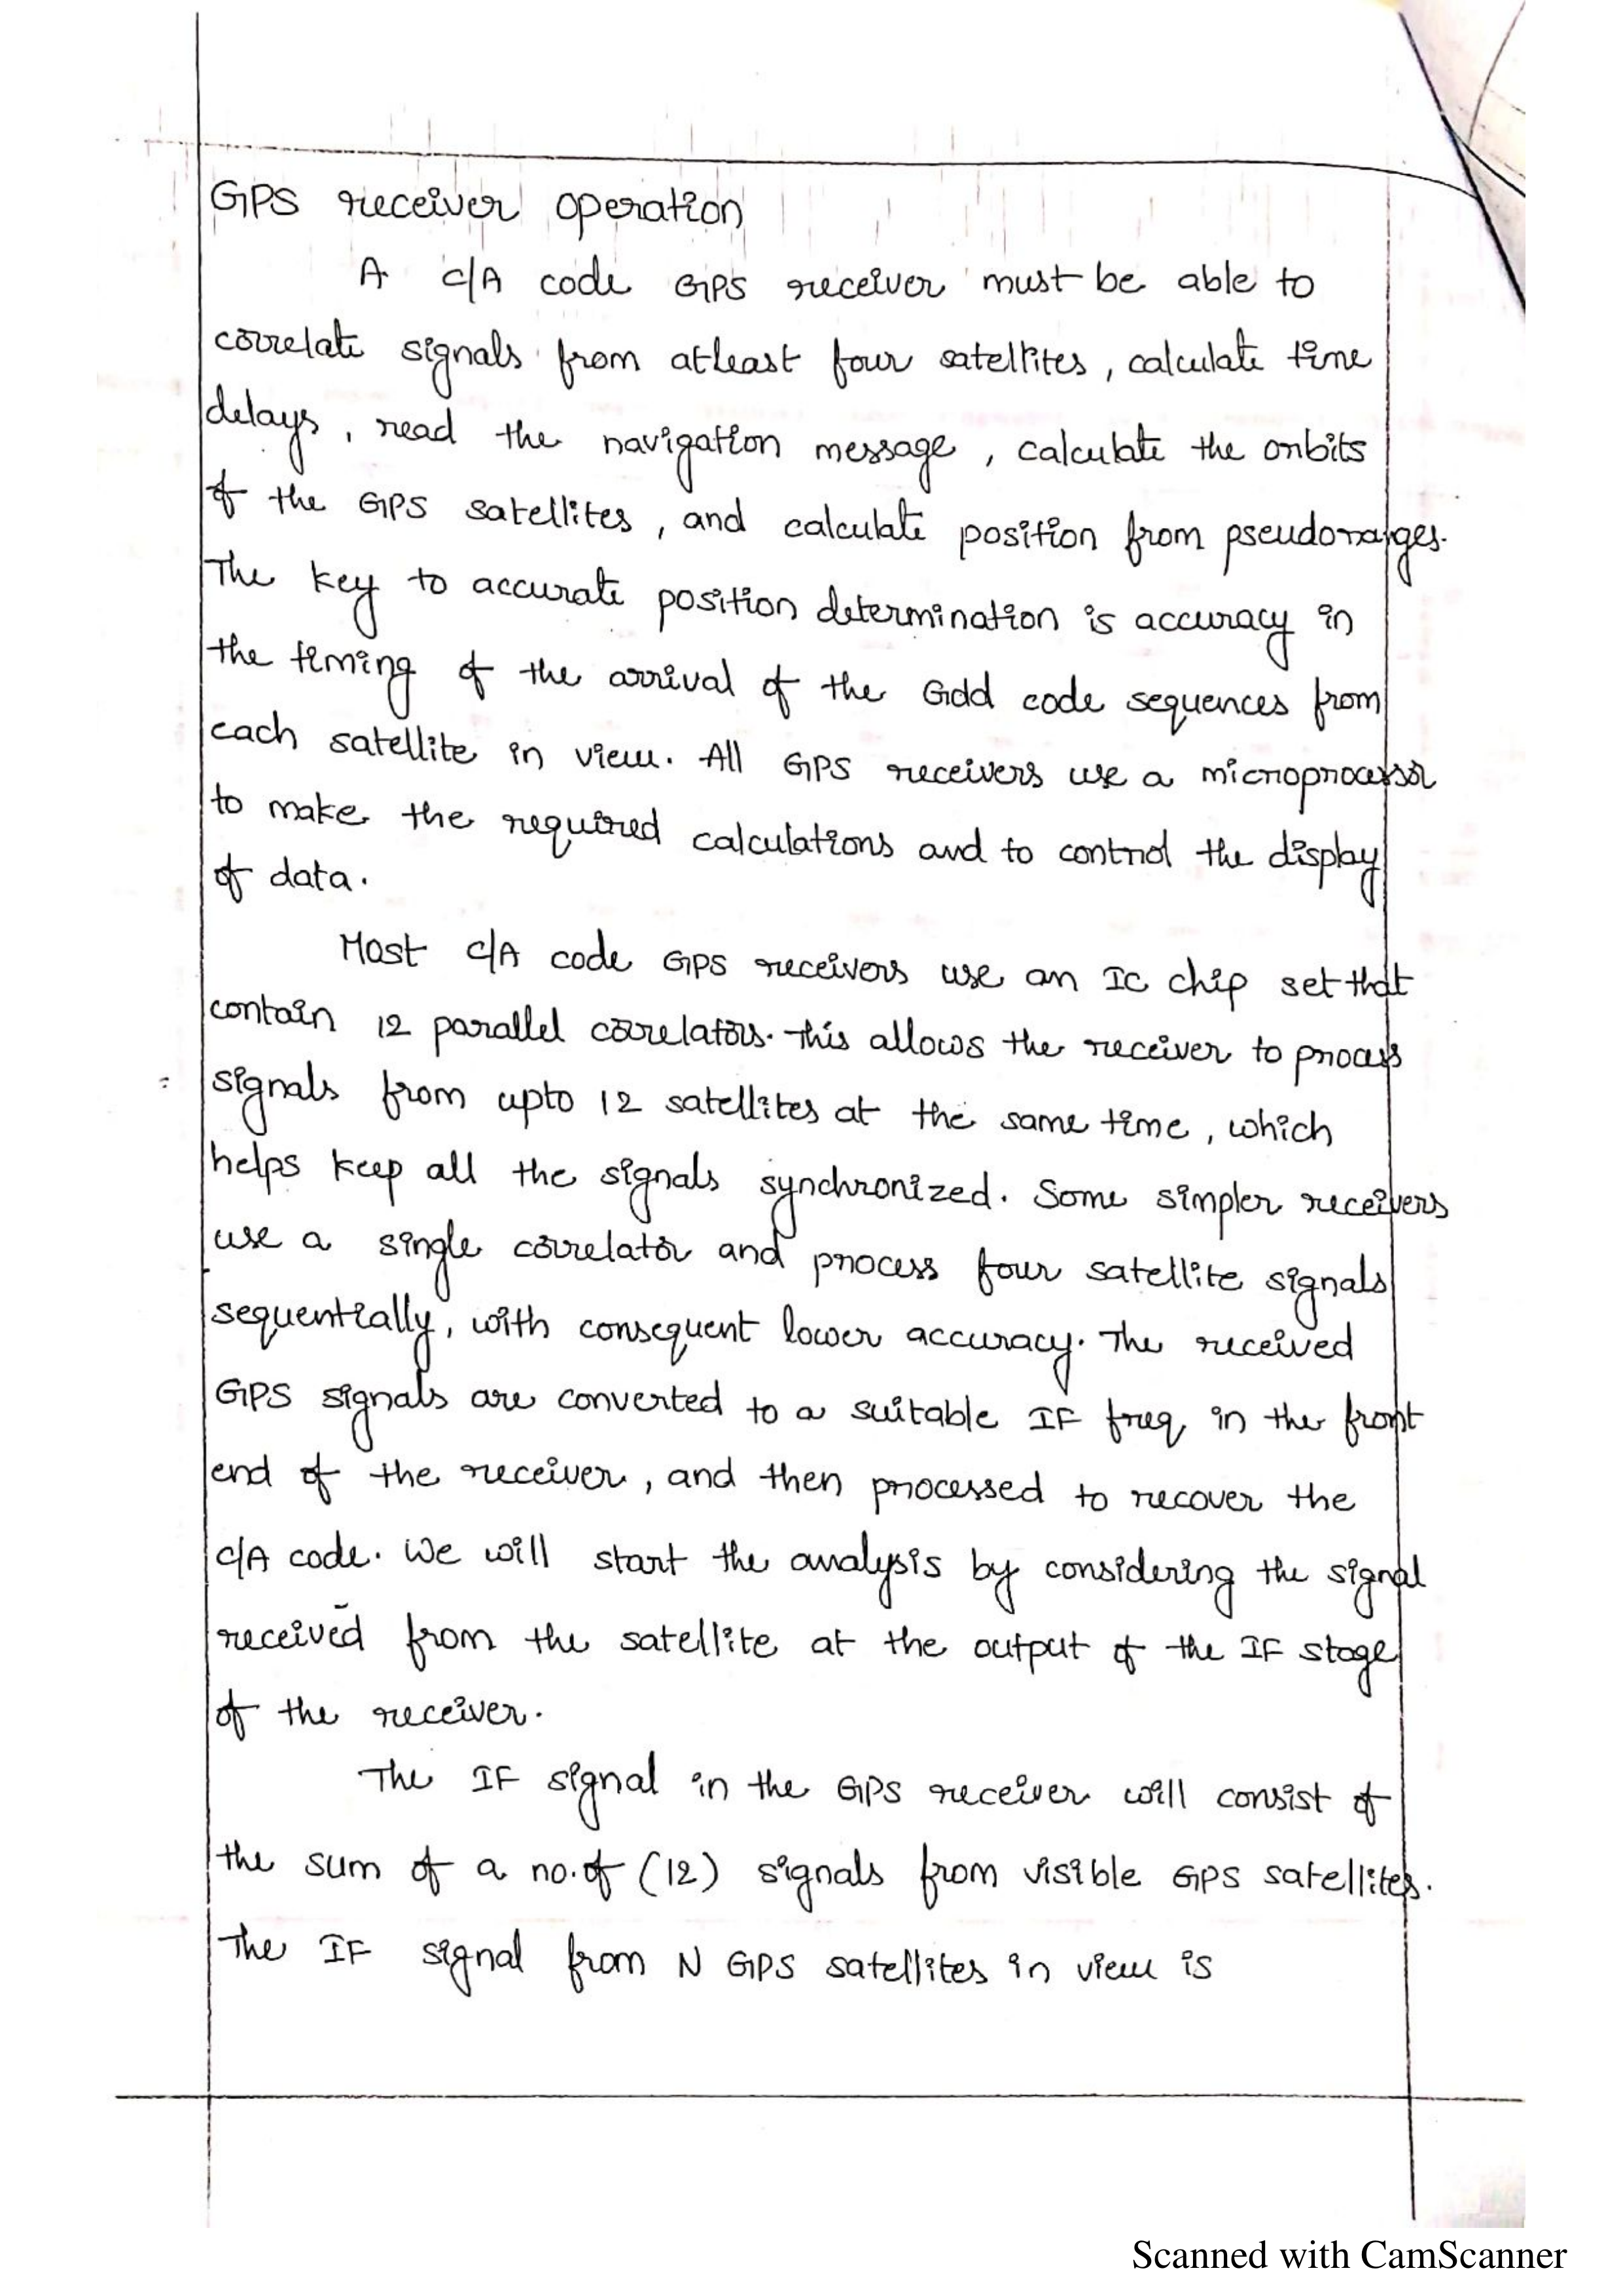 GPS receiver operation
A C/A code GPS receiver must be able to
correlate signals from atleast four satellites, calculate time
delays, read the navigation message, calculate the orbits
of the GPS satellites, and calculate position from pseudoranges.
The key to accurate position determination is accuracy in
the timing of the arrival of the Gdd code sequences from
each satellite in view. All GPS receivers use a microprocessor
to make the required calculations and to control the display
of data.
Most C/A code GPS receivers use an IC chip set that
contain 12 parallel correlators. This allows the receiver to process
signals from upto 12 satellites at the same time, which
helps keep all the signals synchronized. Some simpler receivers
use a single correlator and process four satellite signals
sequentially, with consequent lower accuracy. The received
GPS signals are converted to a suitable IF freq in the front
end of the receiver, and then processed to recover the
C/A code. We will start the analysis by considering the signal
received from the satellite at the output of the IF stage
of the receiver.
The IF signal in the GPS receiver will consist of
the sum of a no.of (12) signals from visible GPS satellites.
The IF signal from N GPS satellites in view is
Scanned with CamScanner